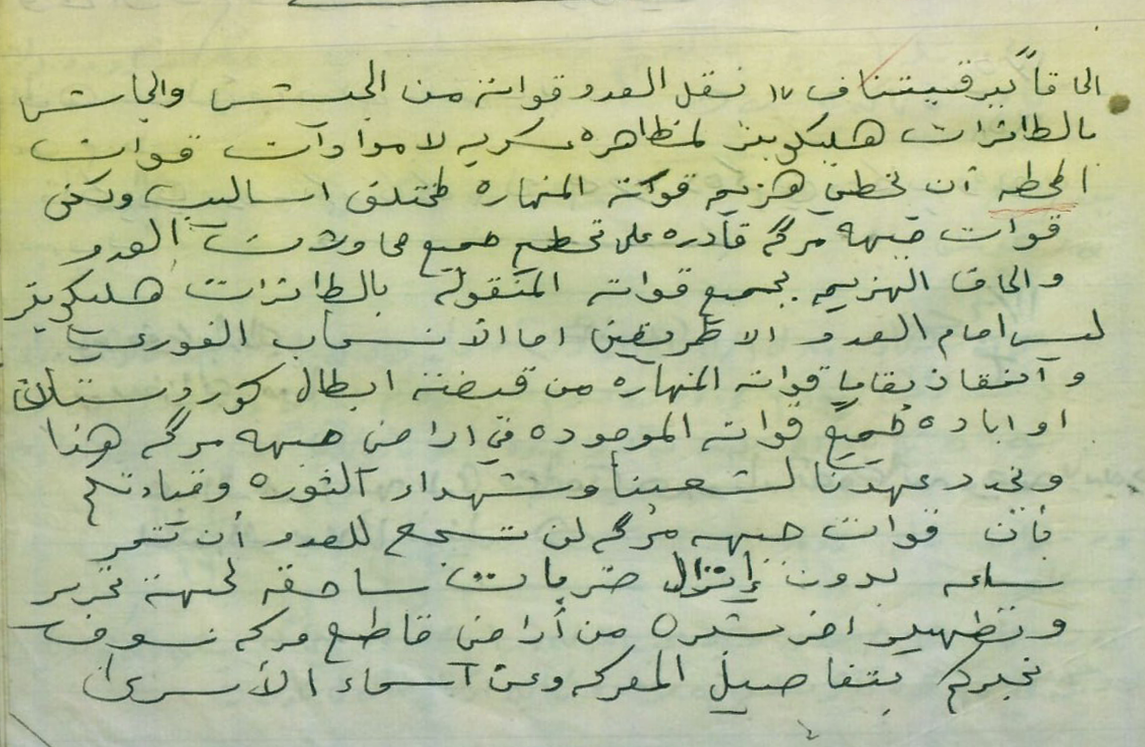 الحاقاً ببرقيتناف ١٧ نقل العدو قواته من الجيش والجاش
بالطائرات هليكوبتر لمظاهره عسكريه لا موادات قوات
المحطه أن تخطي هزيمه قواته المنهاره لمختلق اساليب ولكن
قوات جبهه مرگه قادره على تحطيم جميع محاولات العدو
والحاق الهزيمه بجميع قواته المنقوله بالطائرات هليكوبتر
ليس امام العدو الا طريقين اما الأنسحاب الفوري
و أنقاذ بقايا قواته المنهاره من قبضته ابطال كوردوستان
او اباده جميع قواته الموجوده في اراضي جبهه مرگه هذا
ونجدد عهدنا لشعبنا وشهداء الثوره وقيادتكم
بأن قوات جبهه مرگه لن تسمح للعدو أن تمر
ساعه بدون إنزال ضربات ساحقه لحينة تحرير
وتطهير اخر شبره من أراضي قاطع مرگه سوف
نخبركم بتفاصيل المعركه وعن أسماء الأسرى